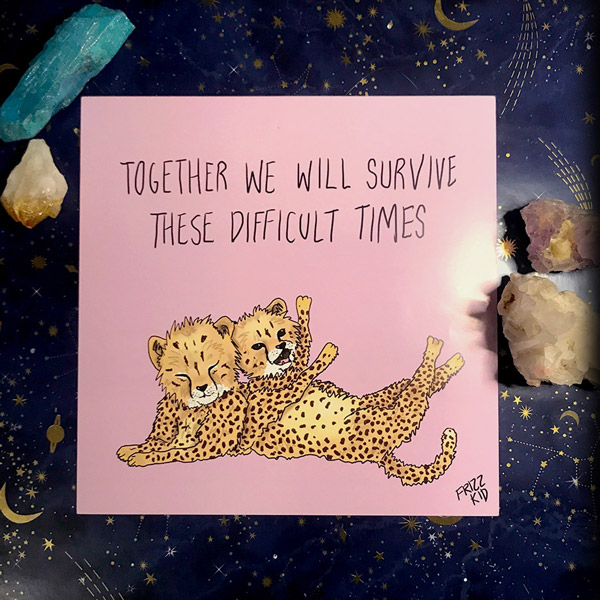 TOGETHER WE WILL SURVIVE
THESE DIFFICULT TIMES
FRIZZ
KID